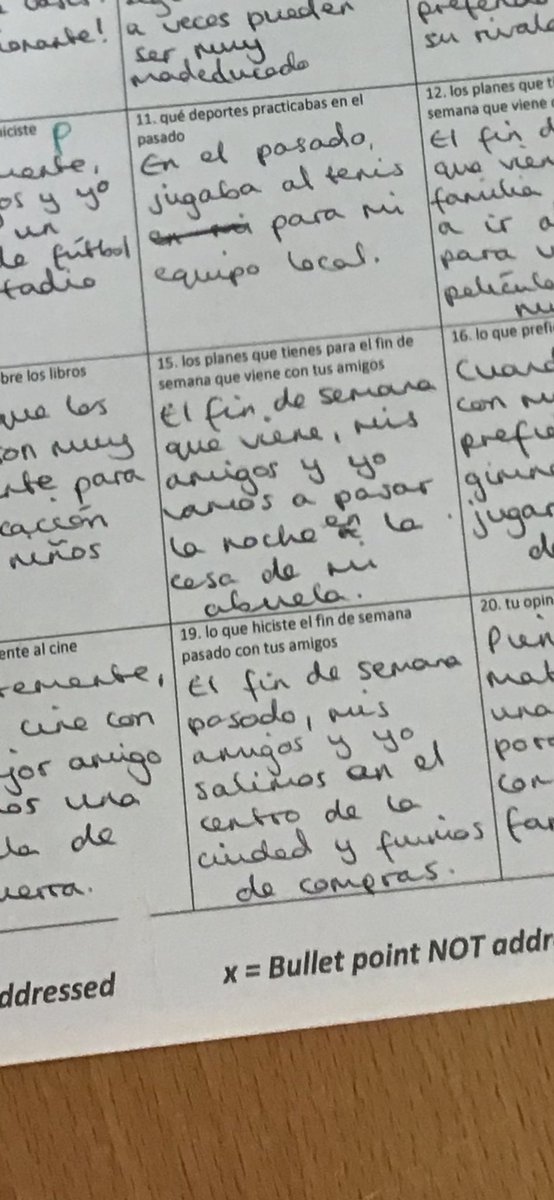 ionante!
a veces pueden
ser muy
madeducado
su rival
hiciste P
mente,
os y yo
un
de fútbol
tadio
11. qué deportes practicabas en el
pasado
En el pasado,
jugaba al tenis
para mi
equipo local.
12. los planes que t
semana que viene
El fin d
que vien
familia
a ir a
para v
película
bre los libros
que los
son muy
nte para
cación
niños
15. los planes que tienes para el fin de
semana que viene con tus amigos
El fin de semana
que viene, mis
amigos y yo
vamos a pasar
la noche en la
casa de mi
abuela.
16. lo que prefi
Cuand
con m
prefie
gimna
jugar
de
ente al cine
temente,
cine con
jor amigo
os una
la de
uerra.
19. lo que hiciste el fin de semana
pasado con tus amigos
El fin de semana
pasado, mis
amigos y yo
salimos en el
centro de la
ciudad y fuimos
de compras.
20. tu opin
Pien
mat
una
porq
con
fam
ddressed
x = Bullet point NOT addr